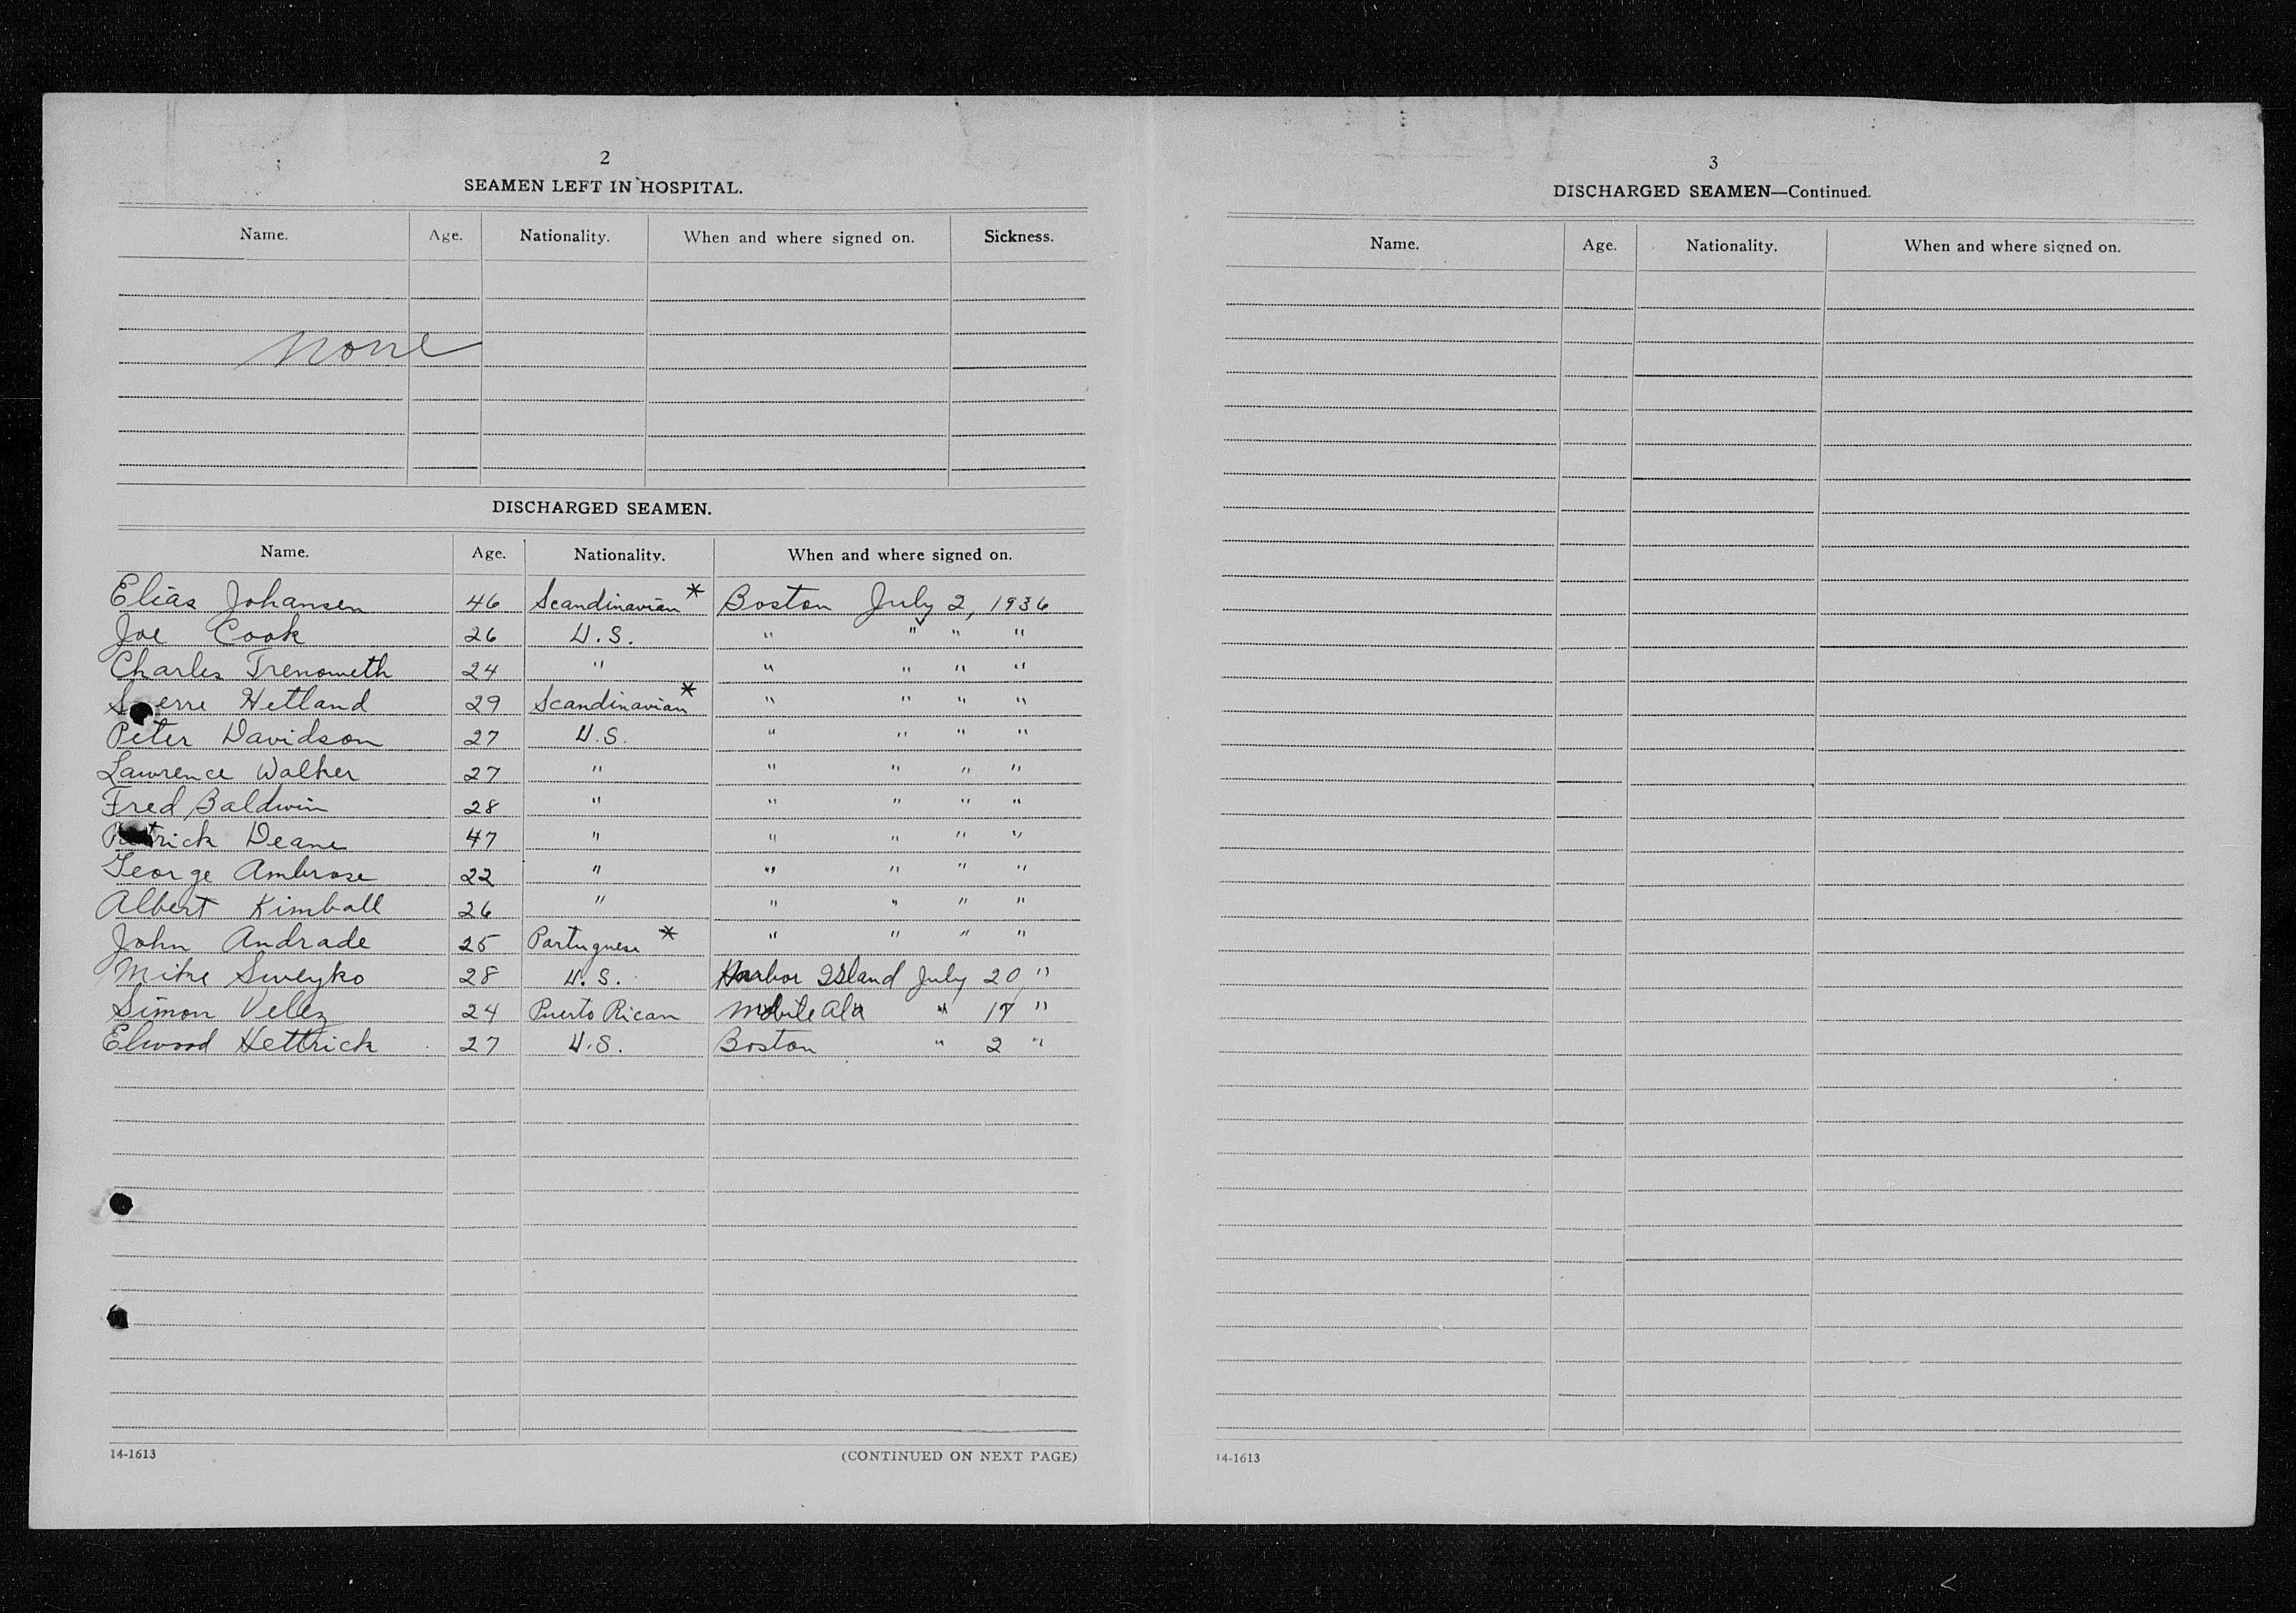 2
SEAMEN LEFT IN HOSPITAL.
Name. Age. Nationality. When and where signed on. Sickness.
None
DISCHARGED SEAMEN.
Name. Age. Nationality. When and where signed on.
Elias Johansen 46 Scandinavian * Boston July 2, 1936
Joe Cook 26 U.S. " " " "
Charles Trenoweth 24 " " " " "
Hetland 29 Scandinavian * " " " "
Peter Davidson 27 U.S. " " " "
Lawrence Walker 27 " " " " "
Fred Baldwin 28 " " " " "
Patrick Deane 47 " " " " "
George Ambrose 22 " " " " "
Albert Kimball 26 " " " " "
John Andrade 25 Portuguese * " " " "
Mike Sweyko 28 U.S. Harbor Island July 20 "
Simon Velez 24 Puerto Rican Mobile Ala " 17 "
Elwood Hettrick 27 U.S. Boston " 2 "
14-1613 (CONTINUED ON NEXT PAGE)
3
DISCHARGED SEAMEN—Continued.
Name. Age. Nationality. When and where signed on.
14-1613